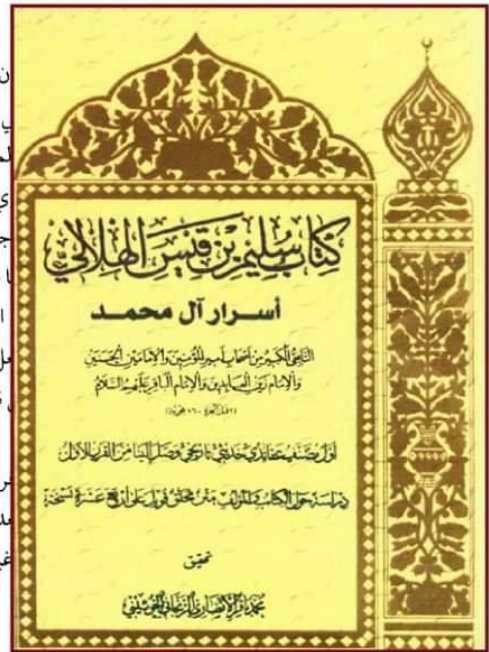 كتاب سليم بن قيس الهلالي
أسرار آل محمد
التابعي الكبير من أصحاب أمير المؤمنين والإمامين الحسنين
والإمام زين العابدين والإمام الباقر عليهم السلام
أول مصنف عقائدي حديثي تاريخي وصل إلينا من القرن الأول
دراسة حول الكتاب والمؤلف متن محقق قوبل على أربع عشرة نسخة
تحقيق
محمد باقر الأنصاري الزنجاني الخوئيني